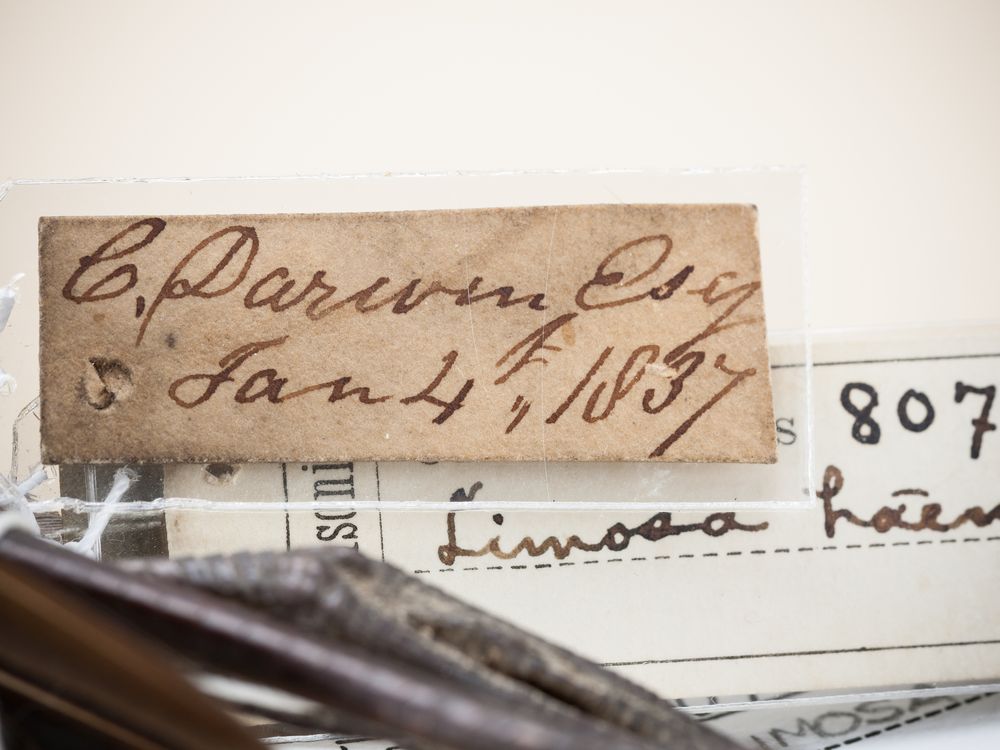 C. Darwin Esq
Jan 4th 1837
s 807
s(ni
Limosa häem
LIMOSA